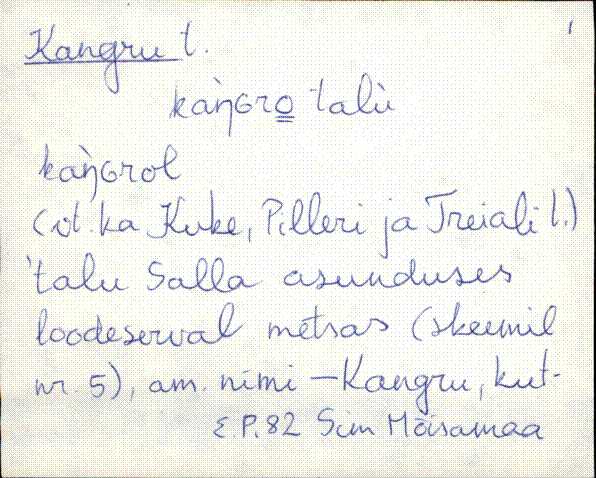 1
Kangru t.
kàŋɢro talù
kàŋɢrol
(vt. ka Kuke, Pilleri ja Treiali t.)
talu Salla asunduses
loodeserval metsas (skeemil
nr. 5), am. nimi – Kangru, kut-
E.P.82 Sim Mõisamaa